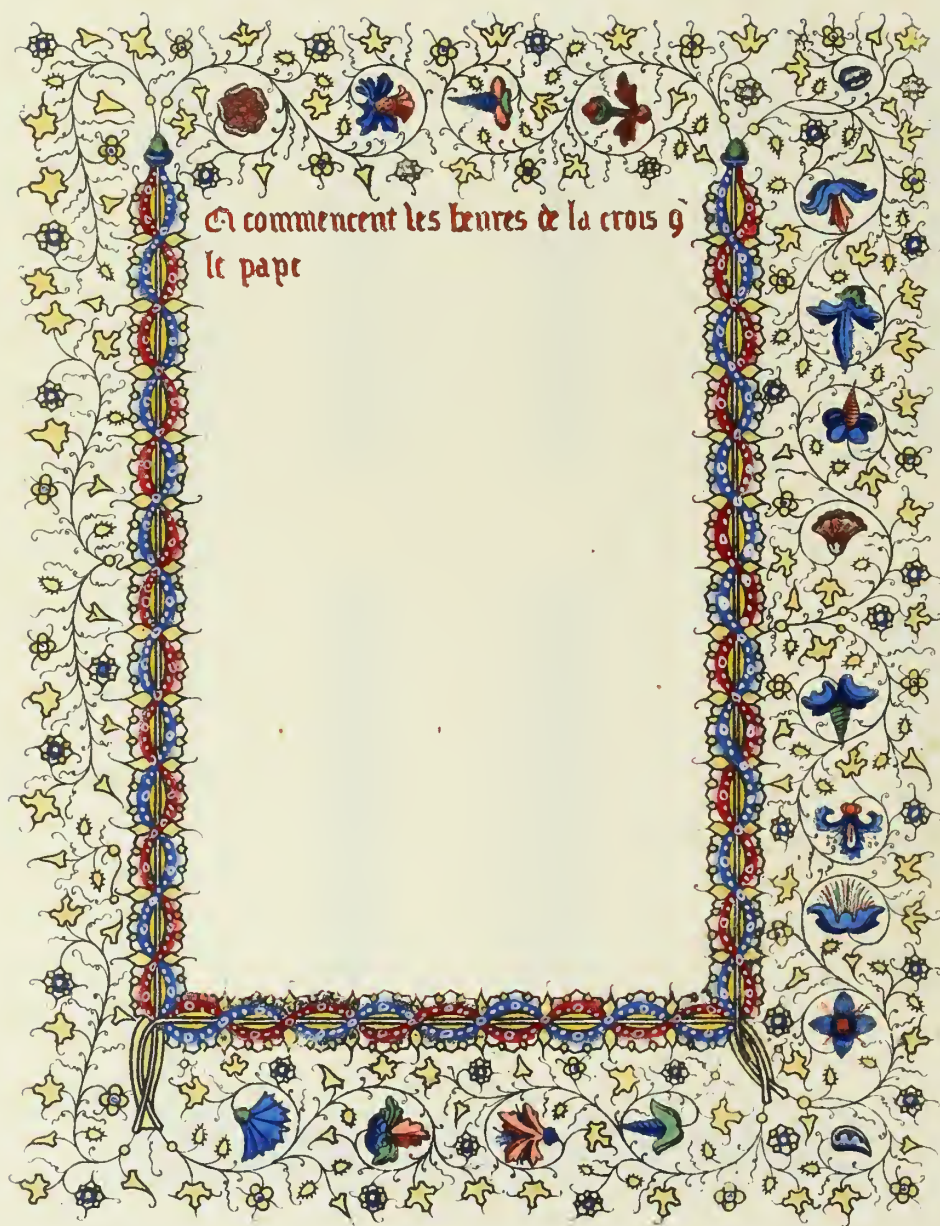 Ci commencent les heures de la crois q̄
le pape